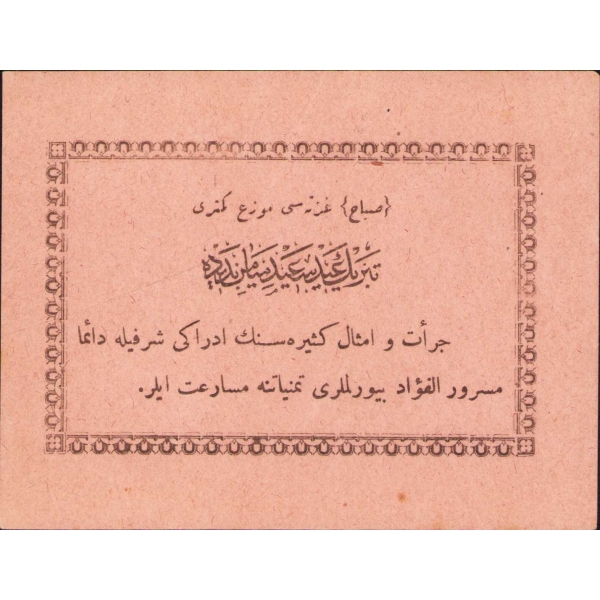 {صباح} غزته‌سی موزع كمتری
تبریك عید سعید
جرأت و امثال كثیره‌سنك ادراكی شرفیله دائما
مسرور الفؤاد بیورلملری تمنیاتنه مسارعت ایلر.